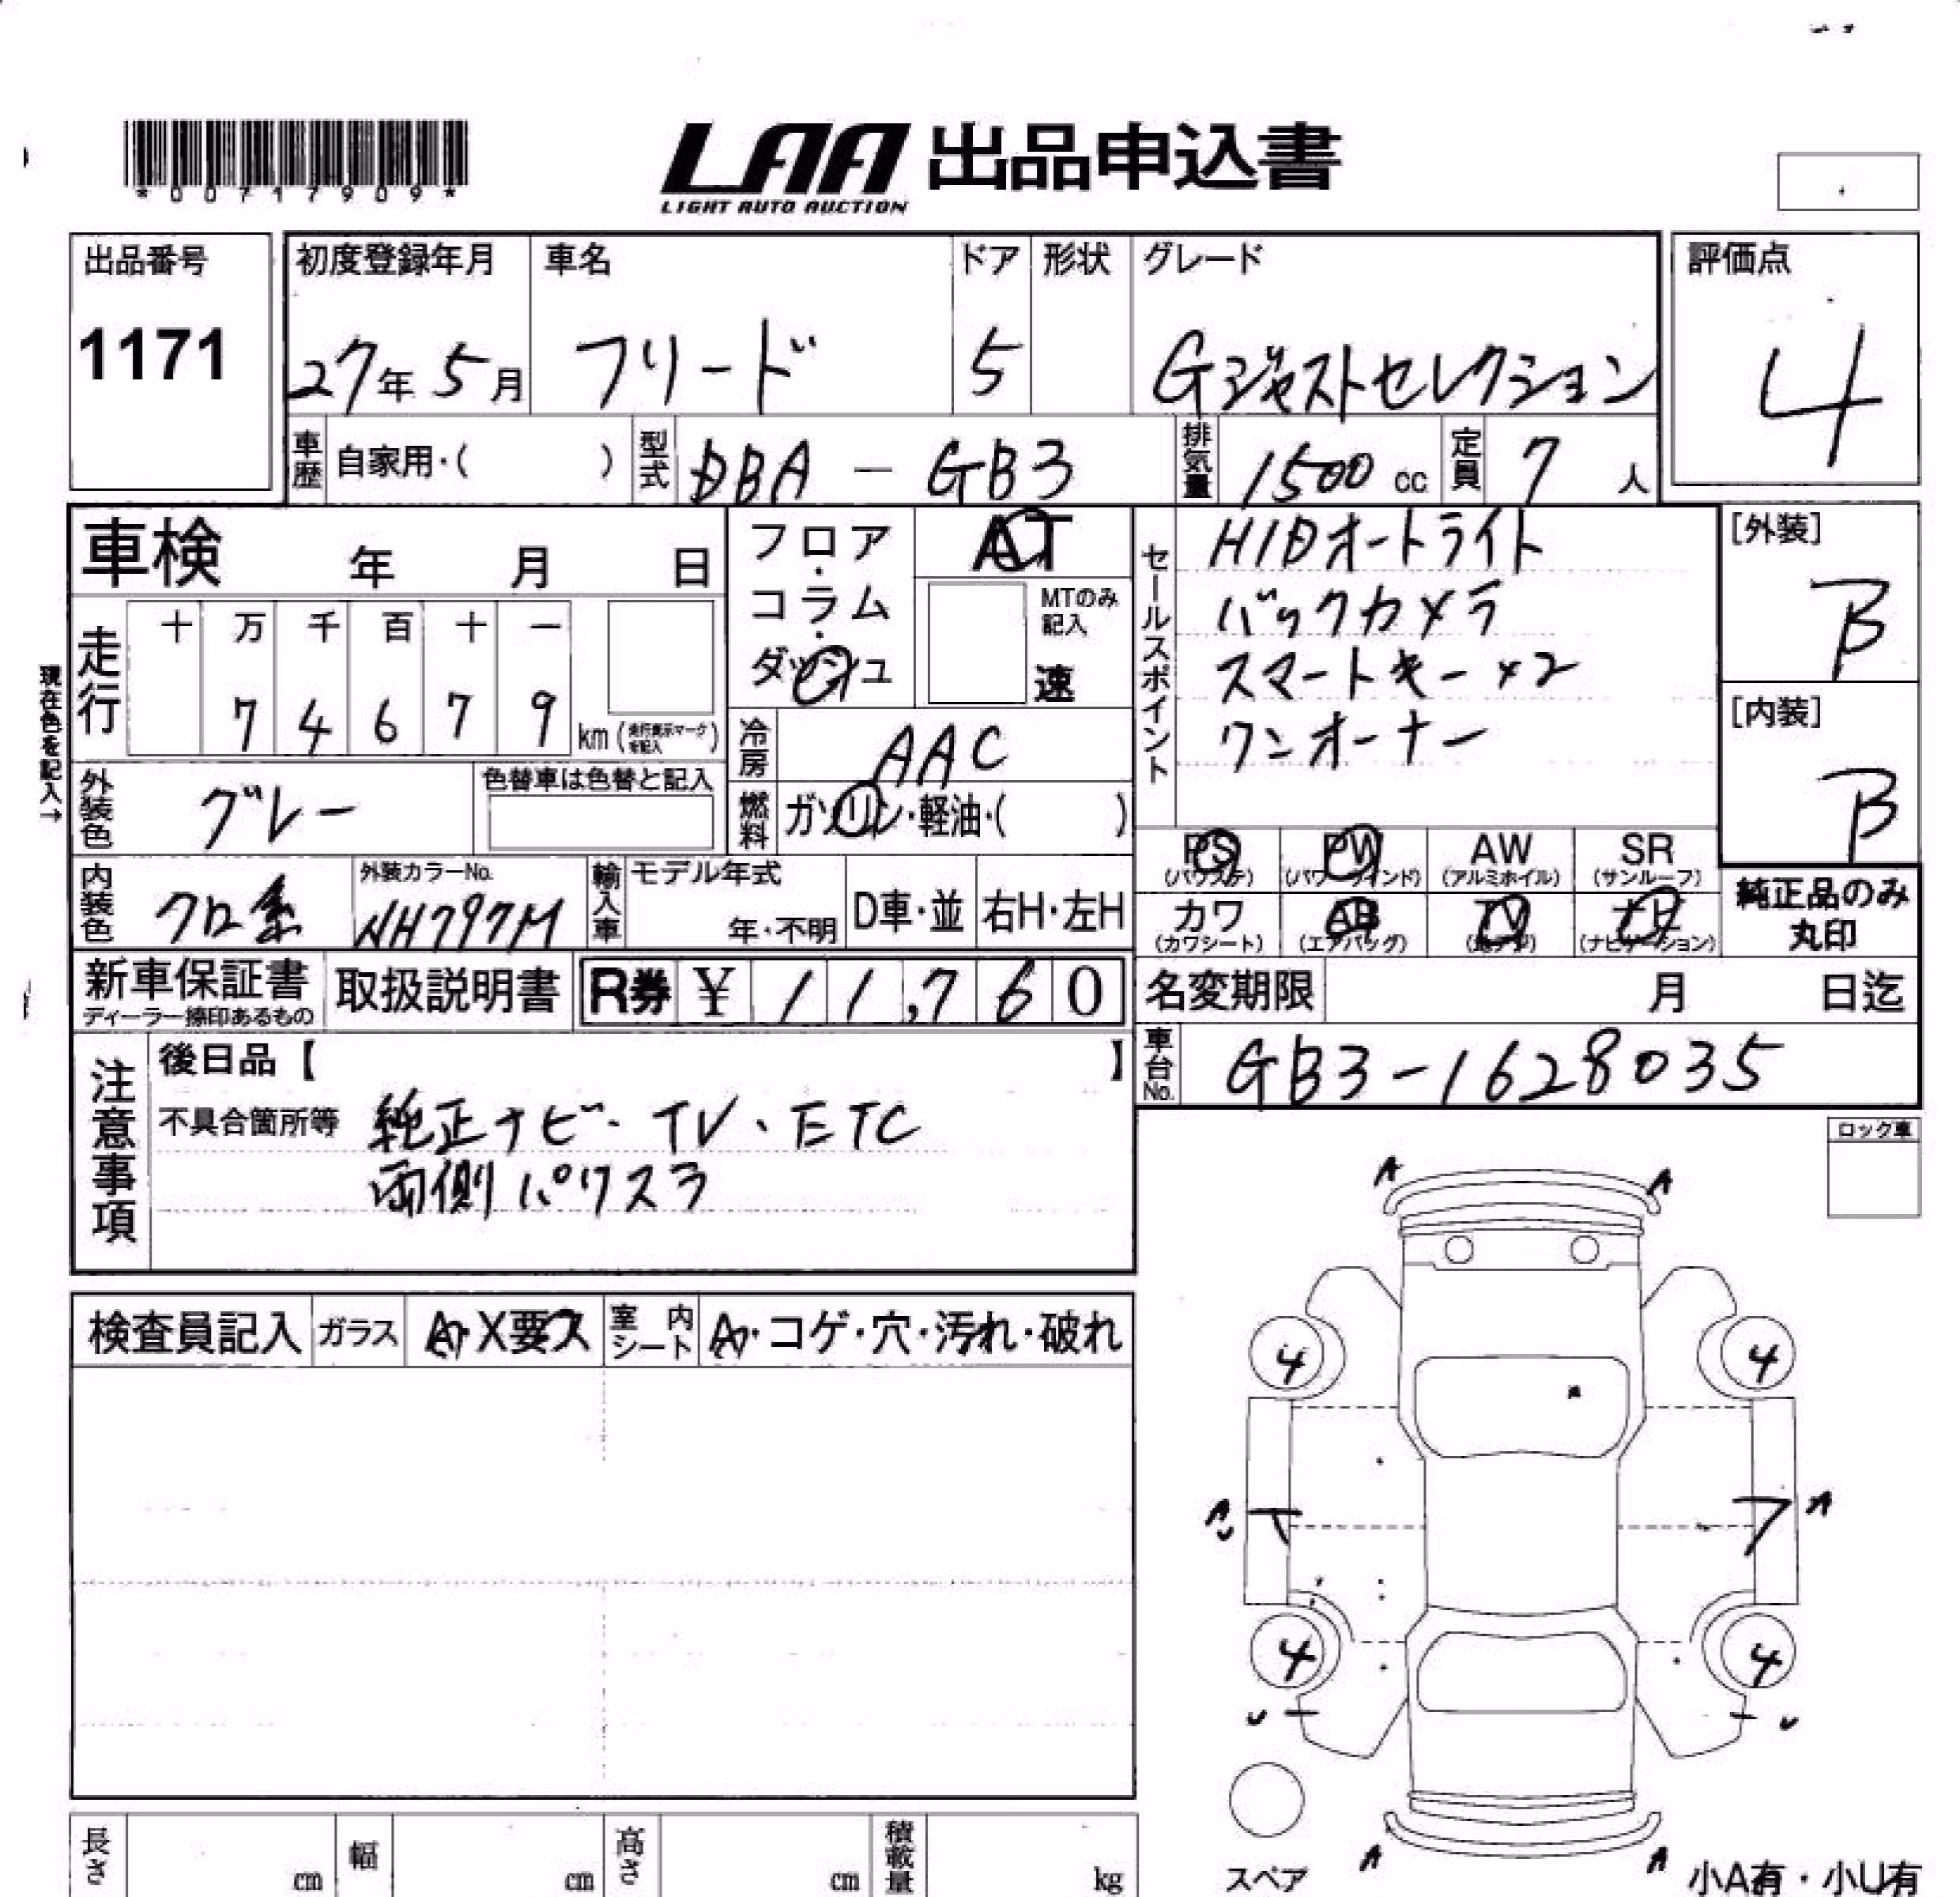 *00717909*
LAA 出品申込書
LIGHT AUTO AUCTION
出品番号
1171
初度登録年月
27年5月
車名
フリード
ドア
5
形状
グレード
Gジャストセレクション
評価点
4
車歴
自家用・( )
型式
DBA-GB3
排気量
1500 cc
定員
7 人
車検 年 月 日
フロア・コラム・ダッシュ
AT
MTのみ記入
速
セールスポイント
HIDオートライト
バックカメラ
スマートキー×2
ワンオーナー
[外装]
B
[内装]
B
現在色を記入→
走行
十 万 千 百 十 一
7 4 6 7 9 km (走行表示マークを記入)
冷房
AAC
外装色
グレー
色替車は色替と記入
燃料
ガソリン・軽油・( )
PS PW AW SR
(パワステ) (パワーウインド) (アルミホイル) (サンルーフ)
カワ AB TV ナビ
(カワシート) (エアバッグ) (地デジ) (ナビゲーション)
純正品のみ
丸印
内装色
クロ系
外装カラーNo.
NH797M
輸入車
モデル年式
年・不明
D車・並
右H・左H
新車保証書
ディーラー捺印あるもの
取扱説明書
R券 ¥ 11,760
名変期限 月 日迄
車台No.
GB3-1628035
注意事項
後日品【 】
不具合箇所等
純正ナビ・TV、ETC
両側パワスラ
ロック車
検査員記入
ガラス
A・X要ス
室内シート
A・コゲ・穴・汚れ・破れ
A A
4 4
A
4 4
A A
スペア
小A有・小U有
長さ cm
幅 cm
高さ cm
積載量 kg